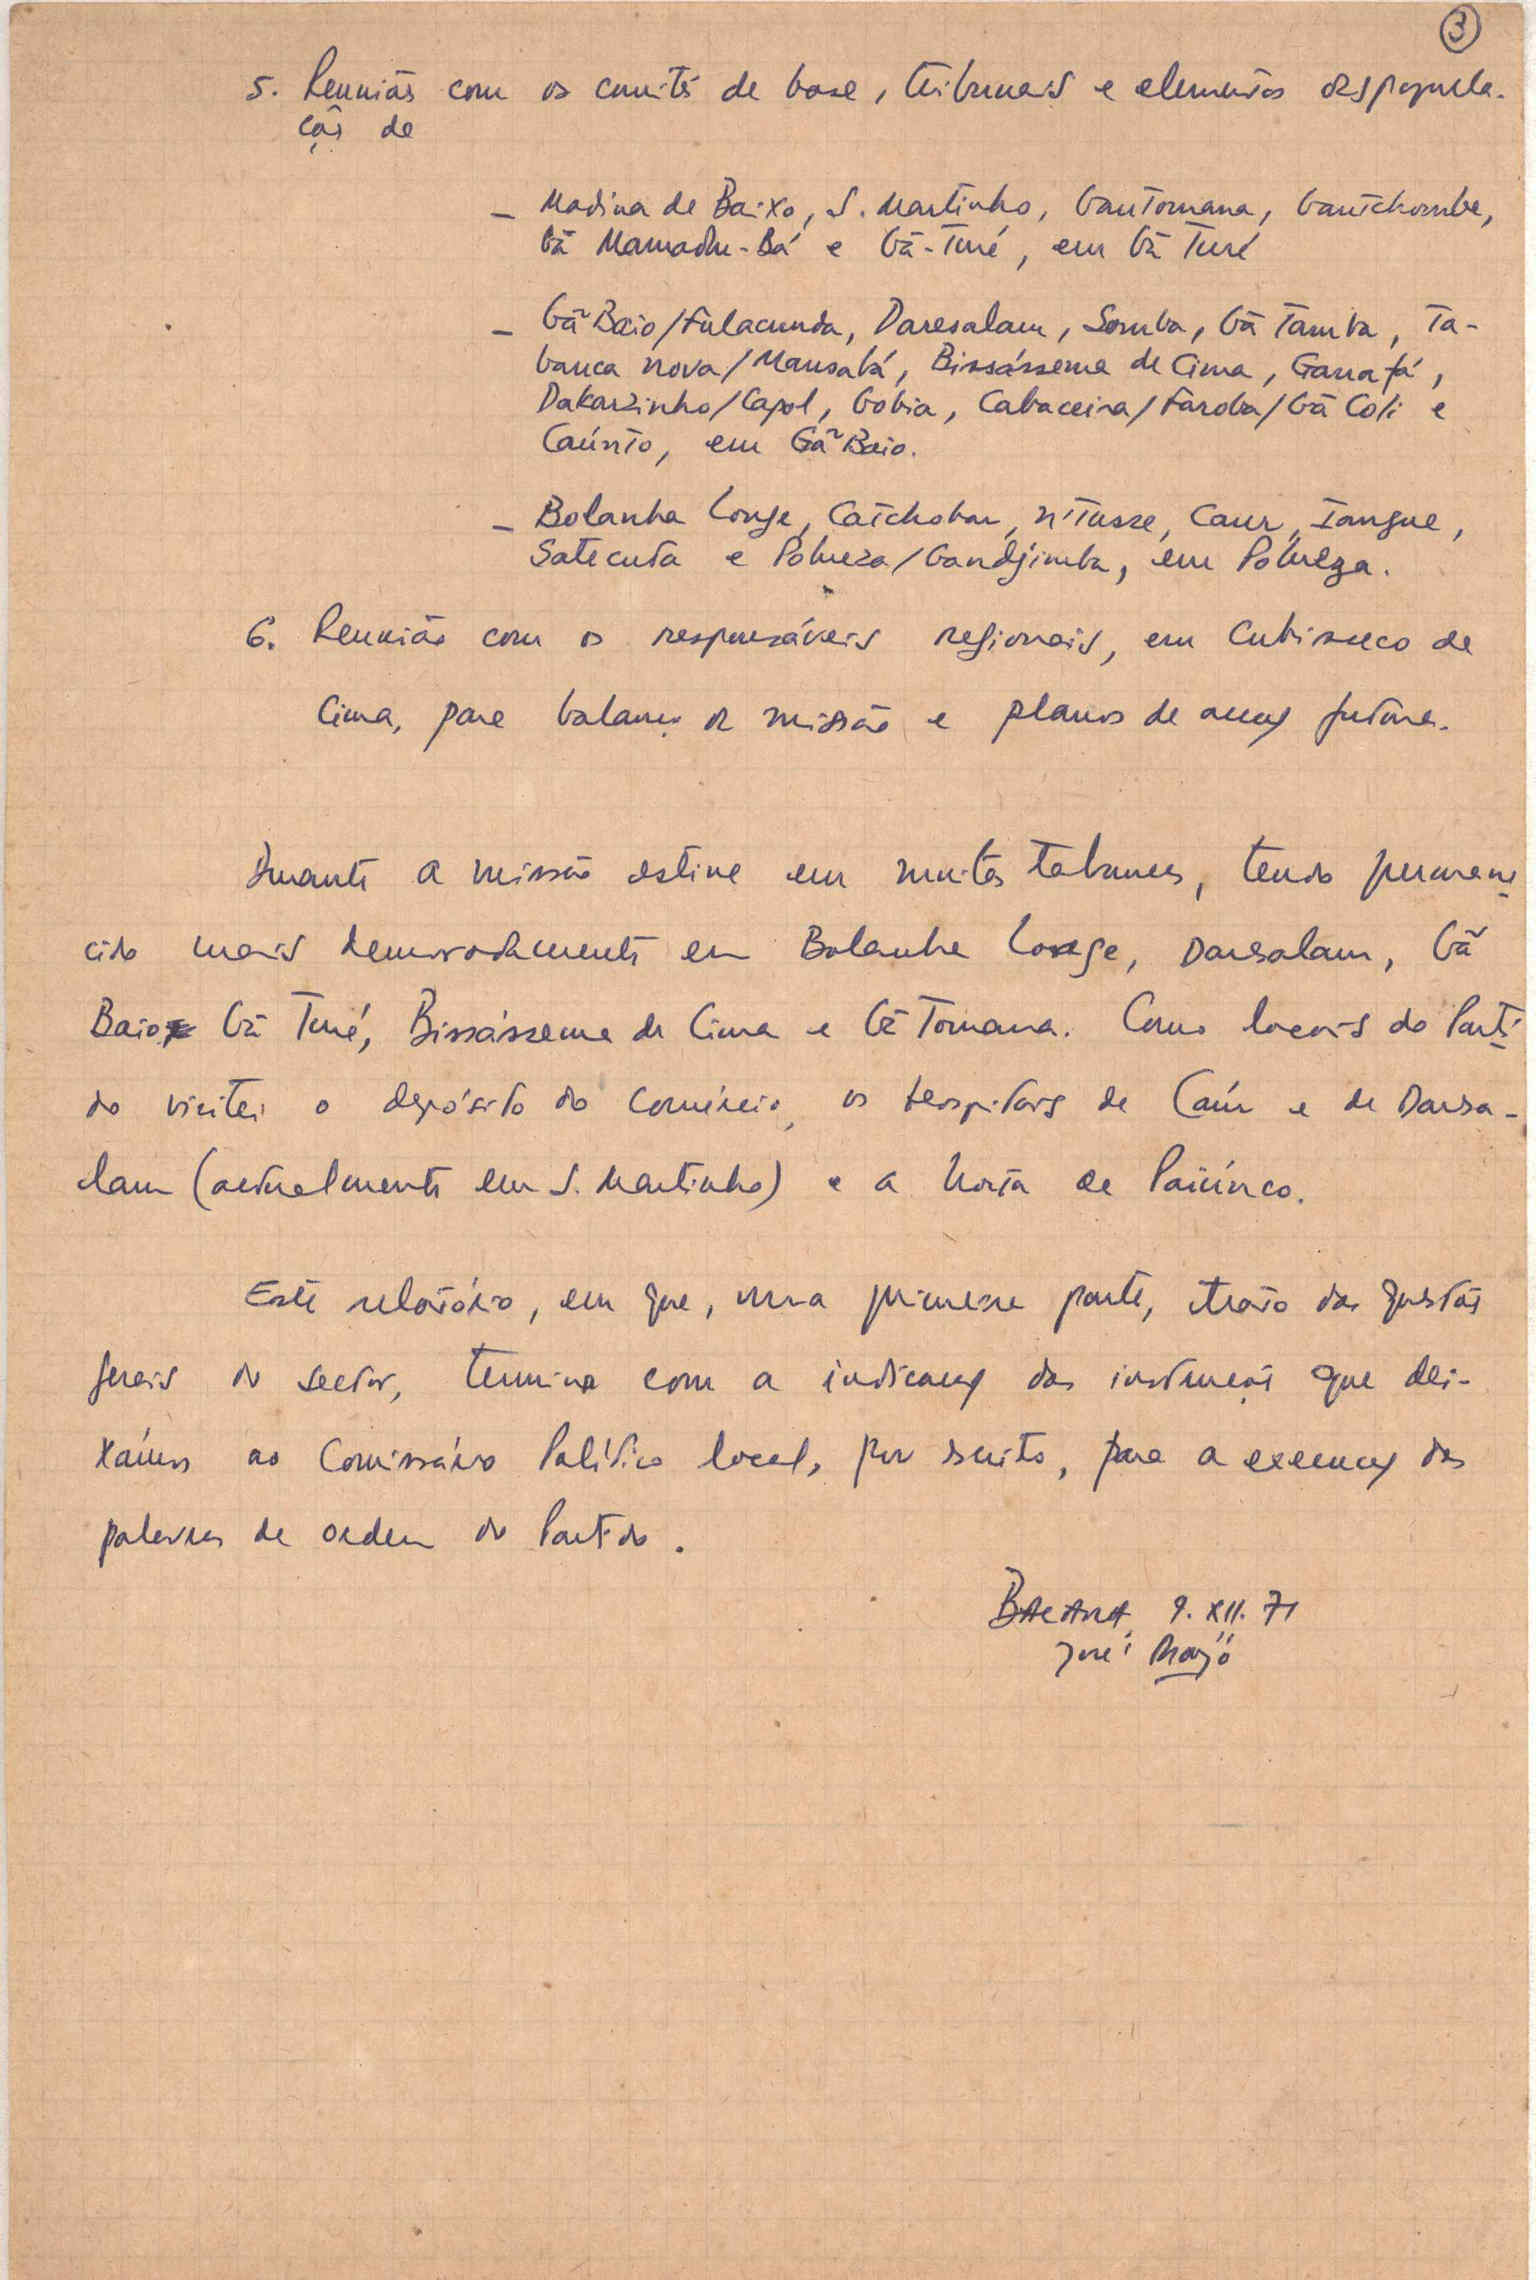 3
5. Reunião com os comités de base, tribunais e elementos das popula-
ções de
– Madina de Baixo, S. Martinho, Gantomana, Gantchomba,
Gã Mamadu-Bá e Gã-Turé, em Gã Turé
– Gã Baio/Fulacunda, Daresalam, Somba, Gã Tamba, Ta-
banca nova/Mansabá, Bissásseme de Cima, Garrafá,
Dakarzinho/Capol, Gobia, Cabaceira/Faroba/Gã Coli e
Caúnto, em Gã Baio.
– Bolanha Longe, Catchobar, N'Tusse, Caur, Iangue,
Satecuta e Pobreza/Gandjimba, em Pobreza.
6. Reunião com os responsáveis regionais, em Cubisseco de
Cima, para balanço da missão e planos de acção futura.
Durante a missão estive em muitas tabancas, tendo permane-
cido mais demoradamente em Bolanha Longe, Daresalam, Gã
Baio, Gã Turé, Bissásseme de Cima e Gã Tomana. Como locais do Parti-
do visitei o depósito do comércio, os hospitais de Caúr e de Darsa-
lam (actualmente em S. Martinho) e a horta de Paiúnco.
Este relatório, em que, numa primeira parte, trato das questões
gerais do sector, termina com a indicação das instruções que dei-
xámos ao Comissário Político local, por escrito, para a execução das
palavras de ordem do Partido.
9.XII.71
José Araújo